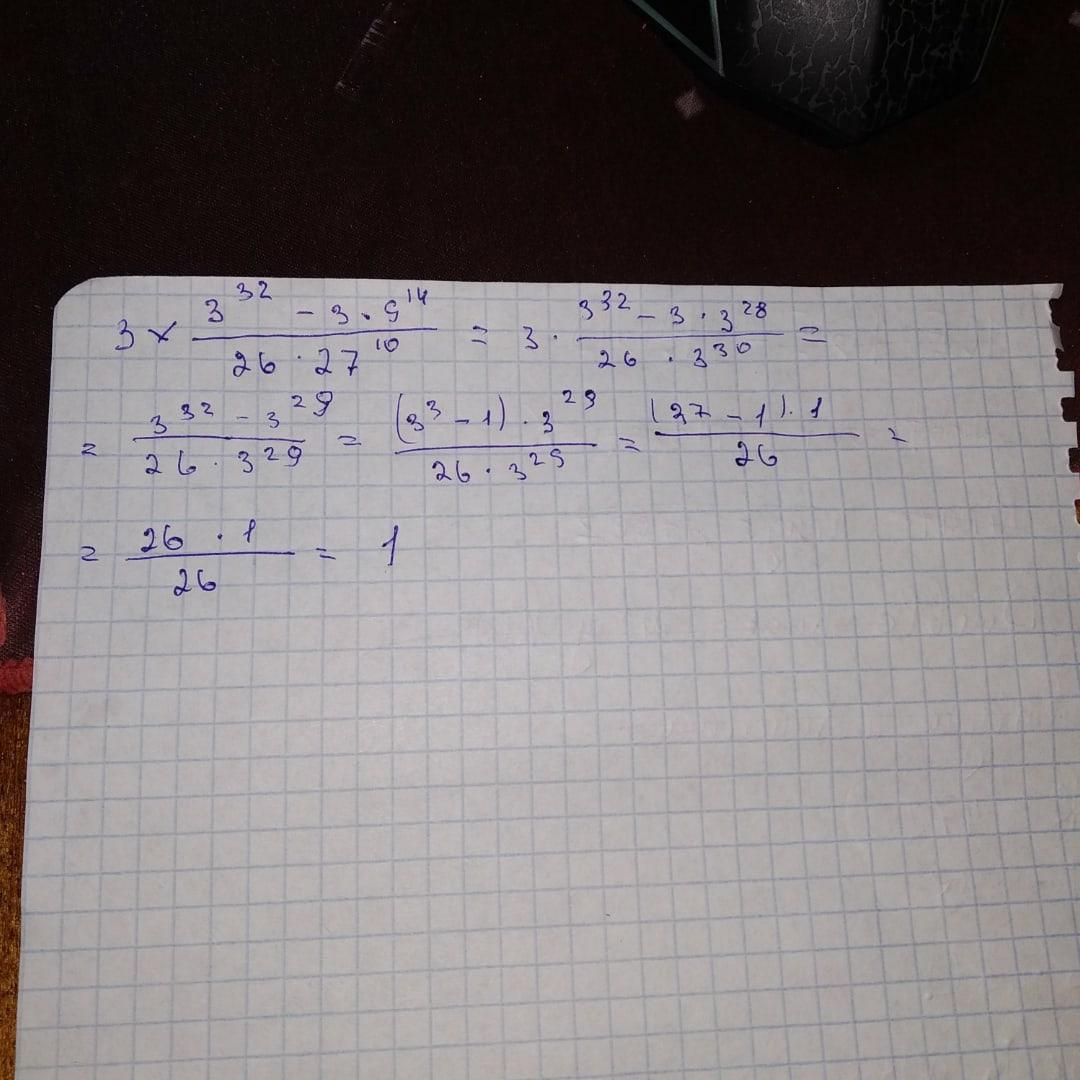 3 × \frac{3^{32} - 3 \cdot 9^{14}}{26 \cdot 27^{10}} = 3 \cdot \frac{3^{32} - 3 \cdot 3^{28}}{26 \cdot 3^{30}} =
= \frac{3^{32} - 3^{29}}{26 \cdot 3^{29}} = \frac{(3^3 - 1) \cdot 3^{29}}{26 \cdot 3^{29}} = \frac{(27 - 1) \cdot 1}{26} =
= \frac{26 \cdot 1}{26} = 1